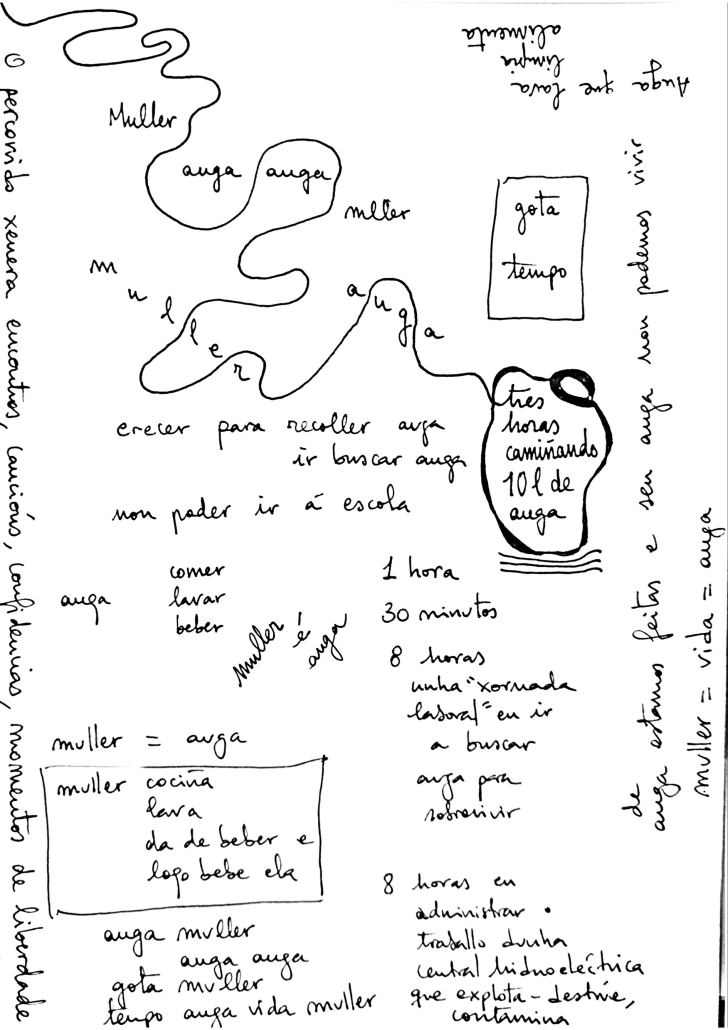 Auga que lava
limpia
alimenta
Muller
auga auga
mller
muller
auga
gota
tempo
tres
horas
camiñando
10 l de
auga
crecer para recoller auga
ir buscar auga
non poder ir á escola
auga
comer
lavar
beber
muller
é
auga
1 hora
30 minutos
8 horas
unha "xornada
laboral" en ir
a buscar
auga para
sobrevivir
muller = auga
muller cociña
lava
da de beber e
logo bebe ela
auga muller
auga auga
gota muller
tempo auga vida muller
8 horas en
administrar
traballo dunha
central hidroeléctrica
que explota - destrúe,
contamina
O percorrido xenera encontros, cancións, confidencias, momentos de liberdade
de
auga estamos feitas e sen auga non podemos vivir
muller = vida = auga